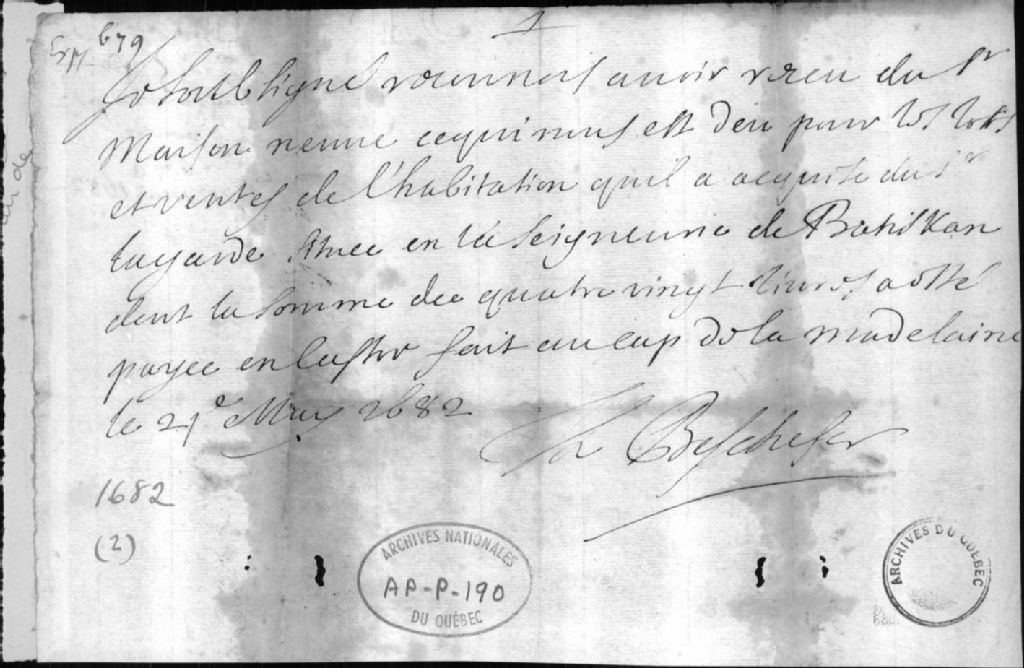 679
Je soubsigné reconnois avoir receu du Sr
Maison neuve cequi nous est deu pour les lots
et ventes de l'habitation quil a acquise du Sr
lagarde situee en la seigneurie de Batiskan
dont la somme de quatre vingt livres a esté
payee en castor fait au cap de la madelaine
le 21e May 1682
Th Beschefer
1682
(2)
ARCHIVES NATIONALES
AP-P-190
DU QUÉBEC
ARCHIVES DU QUÉBEC